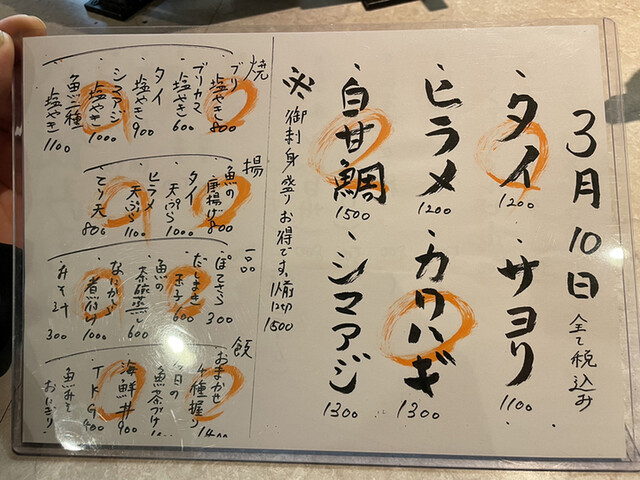 3月10日 全て税込み
・タイ 1200
・サヨリ 1100
・ヒラメ 1200
・カワハギ 1300
・白甘鯛 1500
・シマアジ 1300
※御刺身盛りお得です。1人前 1500
焼
ブリ 塩やき 800
ブリカマ 塩やき 600
タイ 塩やき 900
シマアジ 塩やき 1000
魚三種 塩やき 1100
揚
魚の唐揚げ 800
タイ 天ぷら 1000
ヒラメ 天ぷら 1100
とり天 800
一品
ぽてさら 300
だしまき玉子 600
魚の茶碗蒸し 600
煮付け 1000
みそ汁 300
飯
おまかせ4種握り 1400
今日の魚茶づけ
海鮮丼 900
TKG 400
魚みそおにぎり